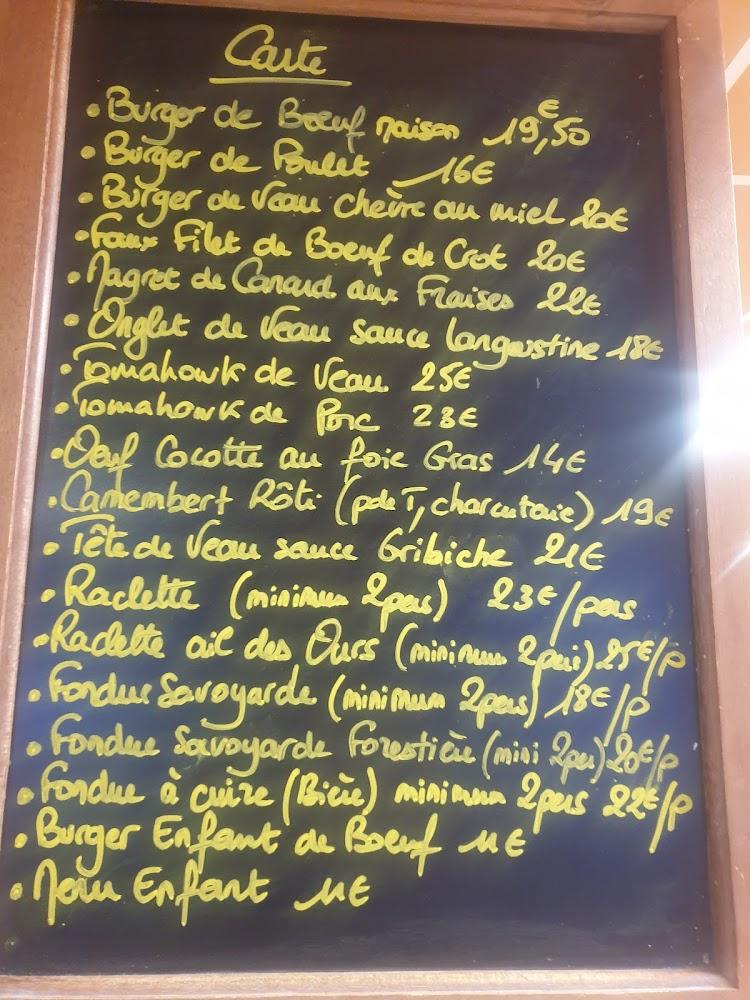 Carte
• Burger de Boeuf maison 19,50€
• Burger de Poulet 16€
• Burger de Veau chèvre au miel 20€
• Faux Filet de Boeuf de Crot 20€
• Magret de Canard aux Fraises 22€
• Onglet de Veau sauce langoustine 18€
• Tomahowk de Veau 25€
• Tomahowk de Porc 23€
• Oeuf Cocotte au foie Gras 14€
• Camembert Rôti (pde T, charcuterie) 19€
• Tête de Veau sauce Gribiche 21€
• Raclette (minimum 2pers) 23€/pers
• Raclette ail des Ours (minimum 2pers) 25€/p
• Fondue Savoyarde (minimum 2pers) 18€/p
• Fondue Savoyarde Forestière (mini 2per) 20€/p
• Fondue à cuire (Bière) minimum 2pers 22€/p
• Burger Enfant de Boeuf 11€
• Menu Enfant 11€